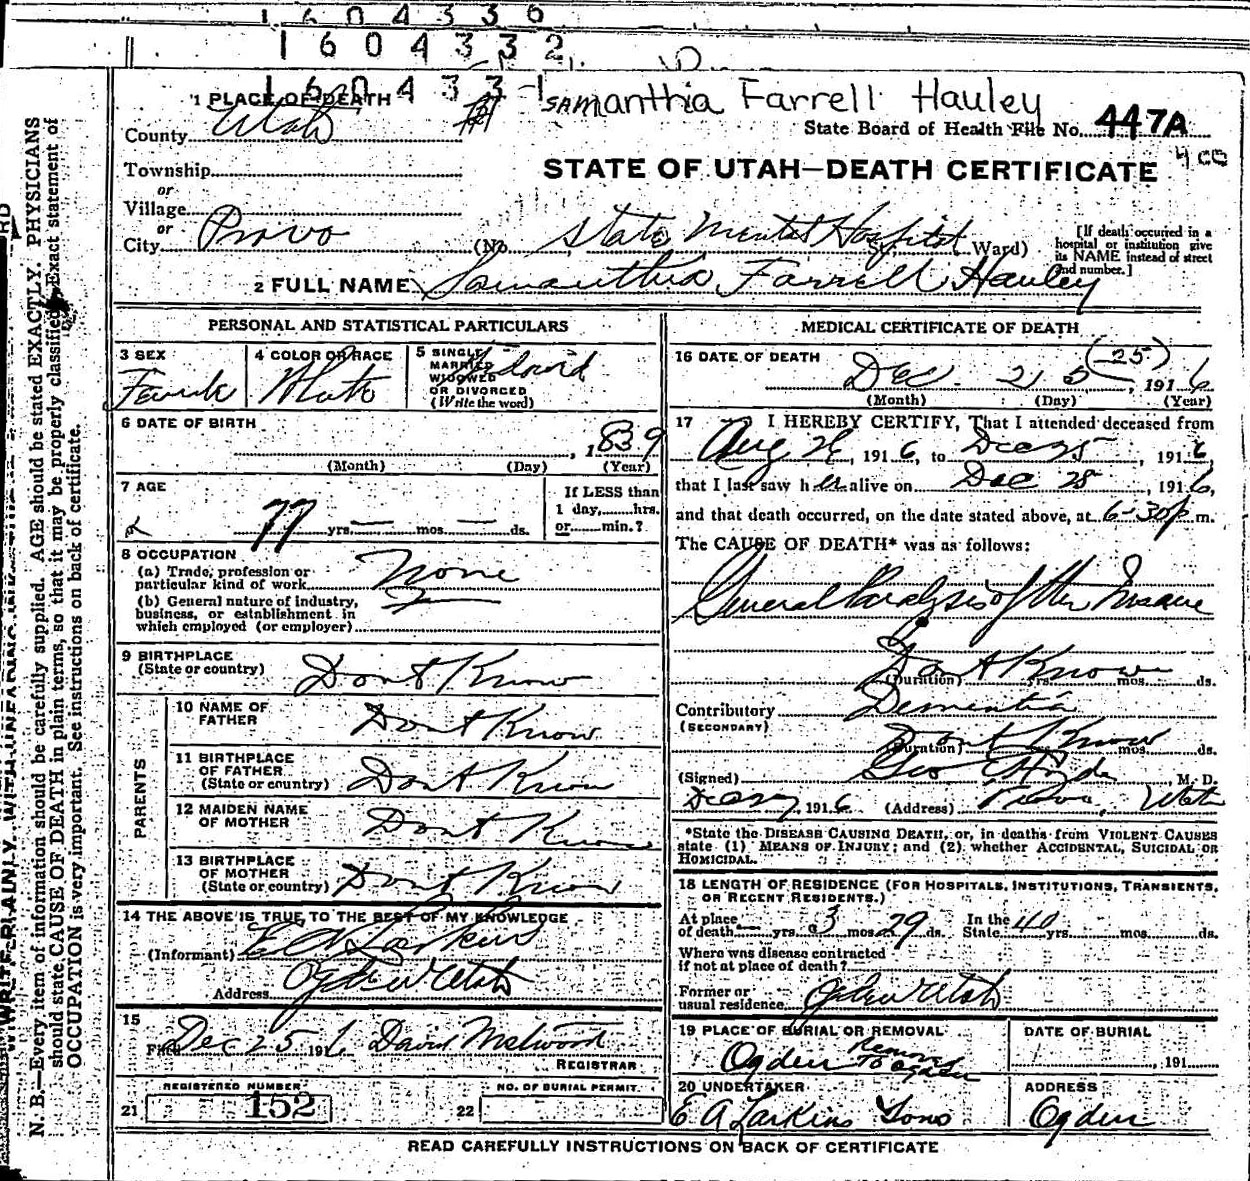 1 6 0 4 3 3 6
1 6 0 4 3 3 2
1 6 0 4 3 3 1
Samanthia Farrell Hauley
State Board of Health File No. 447A
400
STATE OF UTAH—DEATH CERTIFICATE
1 PLACE OF DEATH
County Utah
Township
or
Village
or
City Provo (No. State Mental Hospital St., Ward)
[If death occurred in a
hospital or institution give
its NAME instead of street
and number.]
2 FULL NAME Samanthia Farrell Hauley
PERSONAL AND STATISTICAL PARTICULARS
3 SEX
Female
4 COLOR OR RACE
White
5 SINGLE
MARRIED
WIDOWED
OR DIVORCED
(Write the word)
Widowed
6 DATE OF BIRTH
, 1839
(Month) (Day) (Year)
7 AGE
77 yrs. — mos. — ds.
If LESS than
1 day, hrs.
or min.?
8 OCCUPATION
(a) Trade, profession or
particular kind of work None
(b) General nature of industry,
business, or establishment in
which employed (or employer)
9 BIRTHPLACE
(State or country) Dont Know
PARENTS
10 NAME OF
FATHER Dont Know
11 BIRTHPLACE
OF FATHER
(State or country) Dont Know
12 MAIDEN NAME
OF MOTHER Dont Know
13 BIRTHPLACE
OF MOTHER
(State or country) Dont Know
14 THE ABOVE IS TRUE TO THE BEST OF MY KNOWLEDGE
(Informant) E A Larkin
Address Ogden Utah
15
Filed Dec 25 1916 David
REGISTRAR
REGISTERED NUMBER
21 152
NO. OF BURIAL PERMIT
22
MEDICAL CERTIFICATE OF DEATH
16 DATE OF DEATH
Dec. 25 (25), 1916
(Month) (Day) (Year)
17 I HEREBY CERTIFY, That I attended deceased from
Aug 26, 1916, to Dec 25, 1916,
that I last saw her alive on Dec 25, 1916,
and that death occurred, on the date stated above, at 6-30 p m.
The CAUSE OF DEATH* was as follows:
General Paralysis of the Insane
Dont Know
(Duration) yrs. mos. ds.
Contributory Dementia
(SECONDARY)
Dont Know
(Duration) yrs. mos. ds.
(Signed) Geo E Hyde, M. D.
Dec , 1916 (Address) Provo, Utah
*State the DISEASE CAUSING DEATH, or, in deaths from VIOLENT CAUSES
state (1) MEANS OF INJURY; and (2) whether ACCIDENTAL, SUICIDAL OR
HOMICIDAL.
18 LENGTH OF RESIDENCE (FOR HOSPITALS, INSTITUTIONS, TRANSIENTS,
OR RECENT RESIDENTS.)
At place
of death — yrs. 3 mos. 29 ds.
In the
State 40 yrs. mos. ds.
Where was disease contracted
if not at place of death?
Former or
usual residence Ogden Utah
19 PLACE OF BURIAL OR REMOVAL
Ogden Remove
To Ogden
DATE OF BURIAL
, 191
20 UNDERTAKER
E A Larkin Sons
ADDRESS
Ogden
READ CAREFULLY INSTRUCTIONS ON BACK OF CERTIFICATE
N. B.—Every item of information should be carefully supplied. AGE should be stated EXACTLY. PHYSICIANS
should state CAUSE OF DEATH in plain terms, so that it may be properly classified. Exact statement of
OCCUPATION is very important. See instructions on back of certificate.